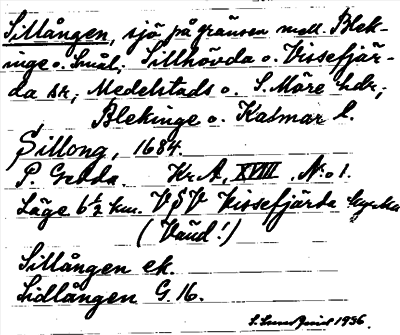 Sillången, sjö på gränsen mell. Blek-
inge o. Smål; Sillhövda o. Vissefjär-
da sr; Medelstads o. S. Möre hdr;
Blekinge o. Kalmar l.
Sillong, 1684.
P. Gedda. Kr. A, XVIII, No 1.
Läge 6½ km. VSV Vissefjärda kyrka
(Vänd!)
Sillången ek.
Lidlången G. 16.
1936.